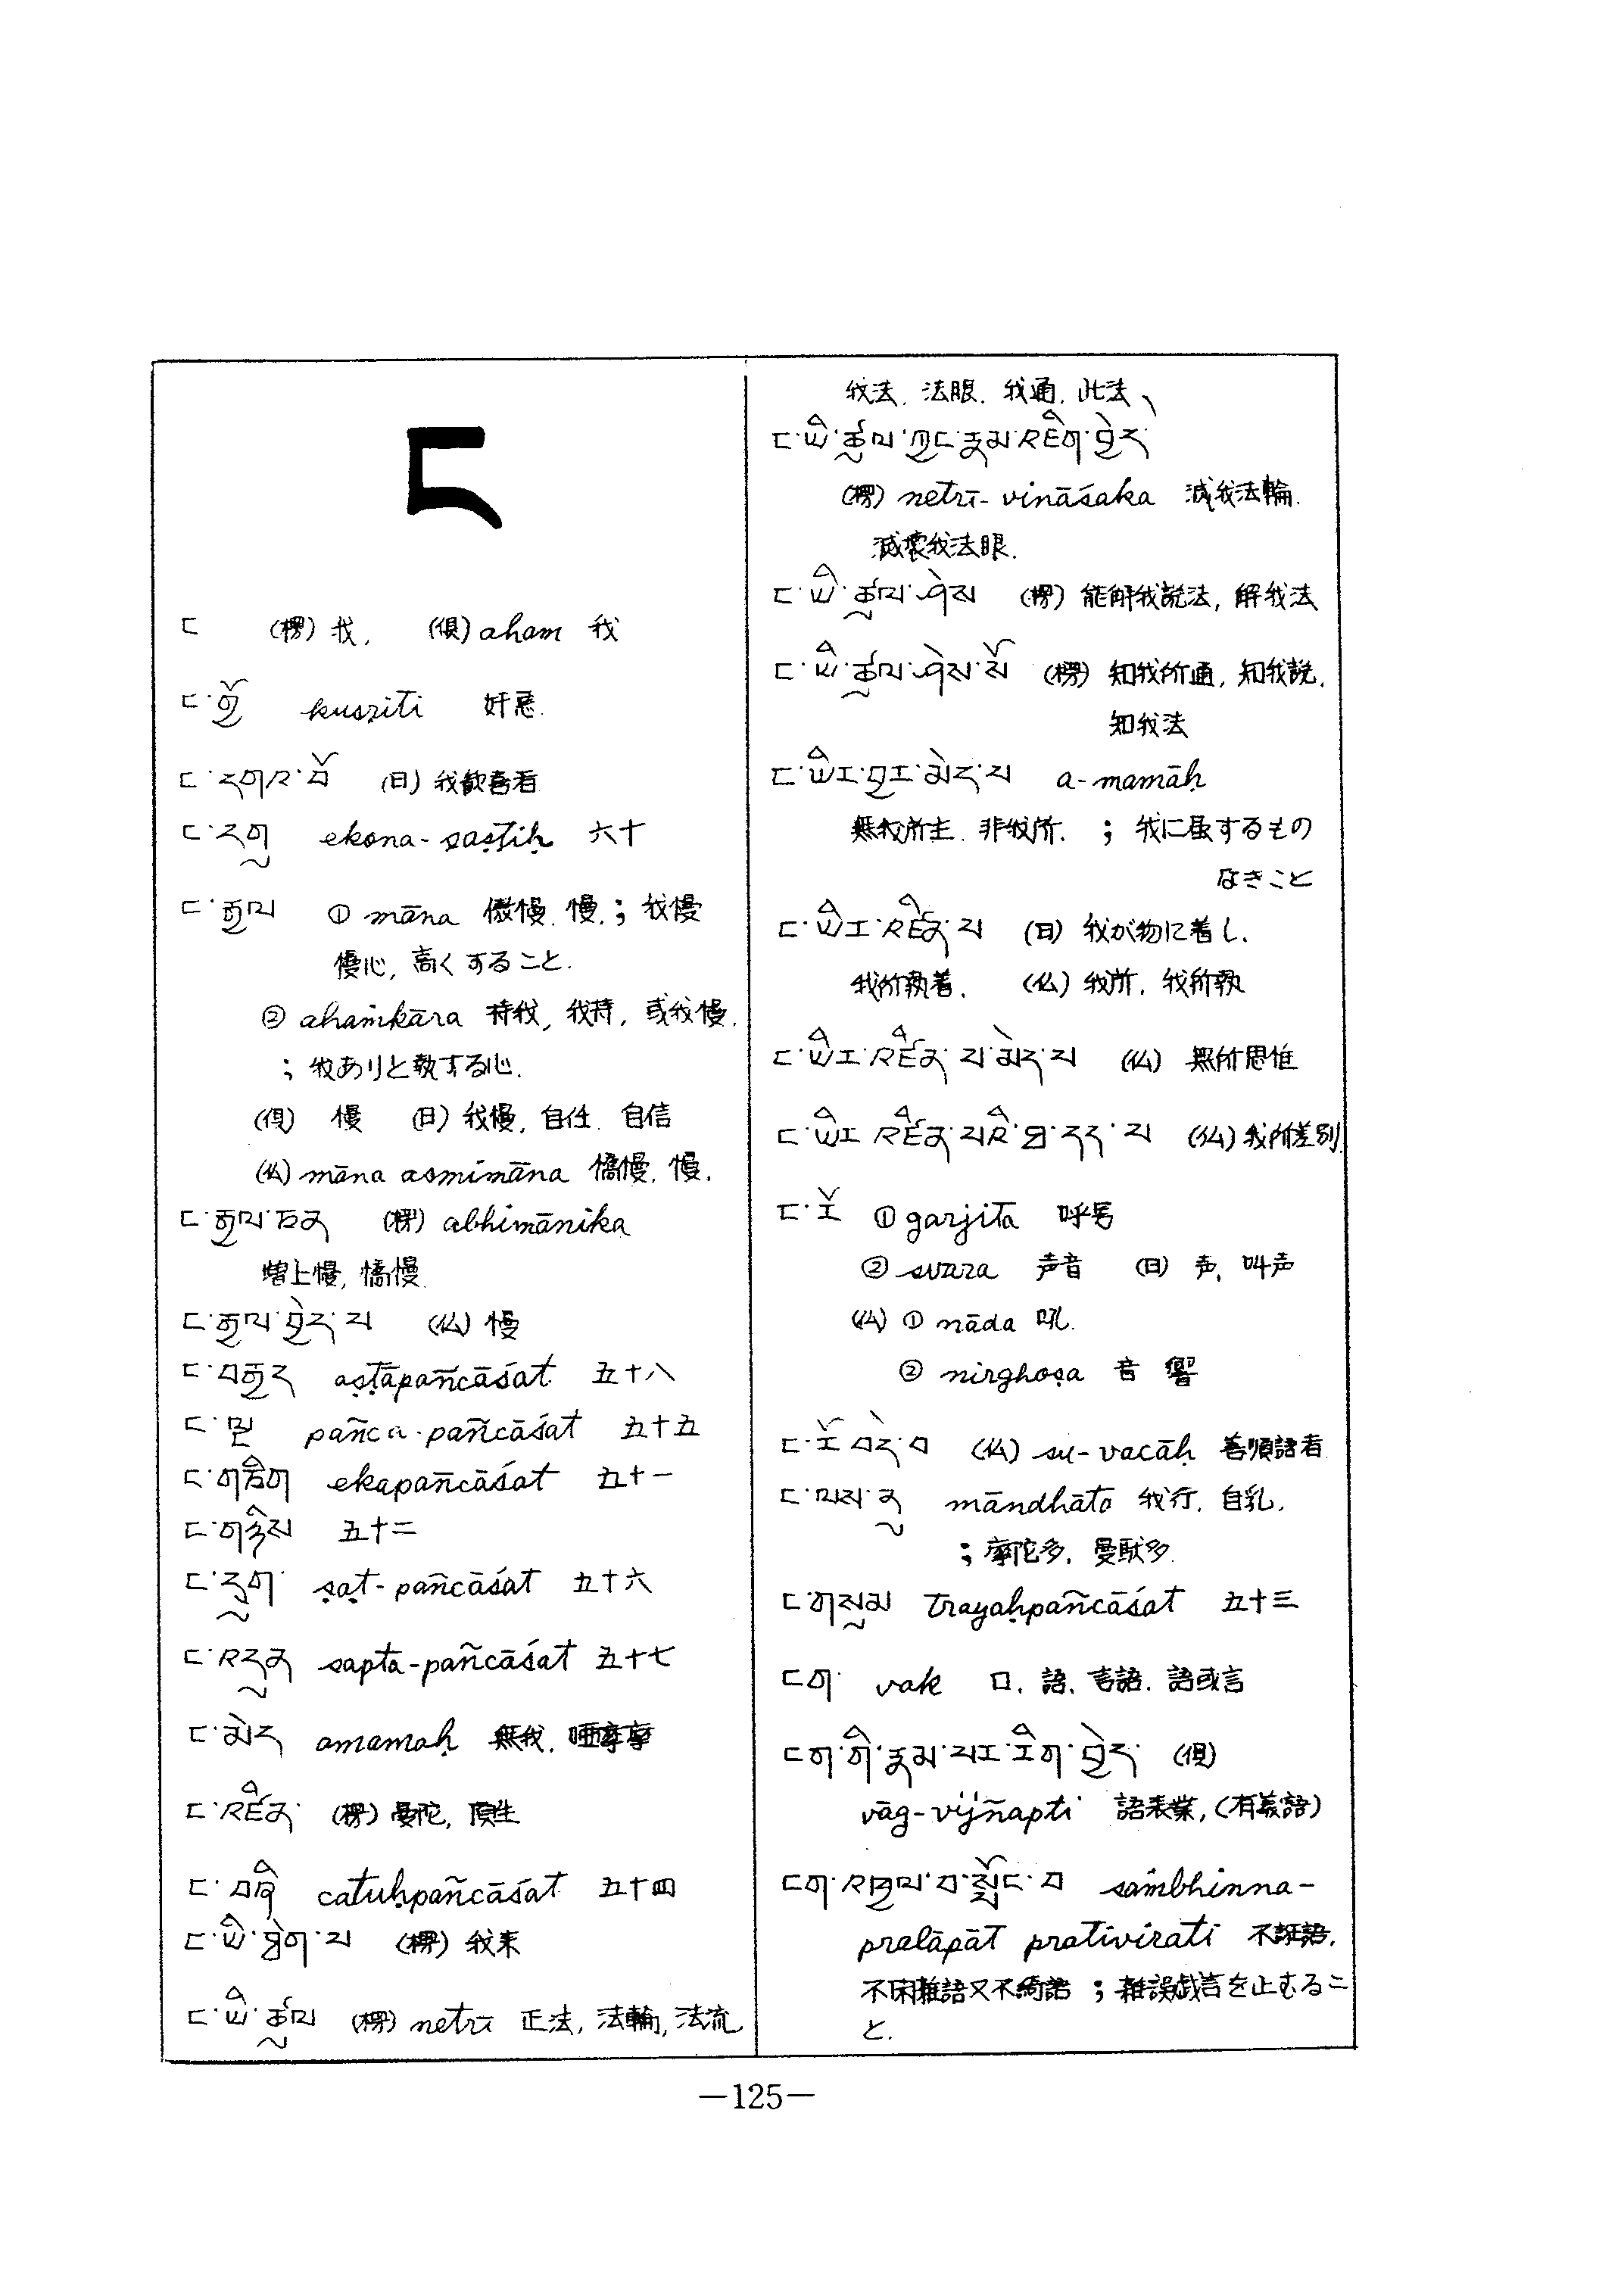 ང
ང (楞) 我, (倶) aham 我
ང་ཀྱོ kusṛiti 奸悪.
ང་དགའ་བོ (日) 我歓喜看
ང་དགུ ekona-ṣaṣṭiḥ 六十
ང་རྒྱལ ① māna 傲慢. 慢. ; 我慢
慢心, 高くすること.
② ahaṁkāra 持我, 我持, 或我慢.
; 我ありと執する心.
(倶) 慢 (日) 我慢, 自任. 自信
(仏) māna asmimāna 憍慢. 慢.
ང་རྒྱལ་ཅན (楞) abhimānika
増上慢, 憍慢.
ང་རྒྱལ་བྱེད་པ (仏) 慢
ང་བརྒྱད aṣṭāpañcāśat 五十八
ང་ལྔ pañca-pañcāśat 五十五
ང་གཅིག ekapañcāśat 五十一
ང་གཉིས 五十二
ང་དྲུག ṣaṭ-pañcāśat 五十六
ང་བདུན sapta-pañcāśat 五十七
ང་མེད amamaḥ 無我.
ང་འཛིན (楞) 曼陀, 頂生
ང་བཞི catuḥpañcāśat 五十四
ང་ཡི་ཕྱོགས (楞) 我来
ང་ཡི་ཚུལ (楞) netrī 正法, 法輪, 法流,
我法. 法眼. 我通. 此法、
ང་ཡི་ཚུལ་ཀྱང་རྣམ་འཇིག་བྱེད
(楞) netrī-vināśaka 滅我法輪.
滅壊我法眼.
ང་ཡི་ཚུལ་ཤེས (楞) 能解我説法, 解我法
ང་ཡི་ཚུལ་ཤེས་སོ (楞) 知我所通, 知我説,
知我法
ང་ཡིར་བྱར་མེད་པ a-mamāḥ
無我所主. 非我所. ; 我に属するもの
なきこと
ང་ཡིར་འཛིན་པ (日) 我が物に着し.
我所執着. (仏) 我所. 我所執
ང་ཡིར་འཛིན་པ་མེད་པ (仏) 無所思惟
ང་ཡིར་འཛིན་པའི་ཐ་དད་པ (仏) 我所差別.
ང་རོ ① garjita 呼号
② svara 声音 (日) 声. 叫声
(仏) ① nāda 吼.
② nirghoṣa 音響
ང་རོ་བདེ་བ (仏) su-vacāḥ 善順語者
ང་ལས་ནུ māndhāto 我行. 自乳.
; 摩陀多. 曼駄多.
ང་གསུམ trayaḥpañcāśat 五十三
ངག vak 口. 語. 言語. 語或言
ངག་གི་རྣམ་པར་རིག་བྱེད (倶)
vāg-vijñapti 語表業, (有義語)
ངག་འཁྱལ་བ་སྤོང་བ saṁbhinna-
pralāpāt prativirati 不誑語,
不困雑語又不綺語 ; 雑誤戯言を止むるこ
と.
—125—